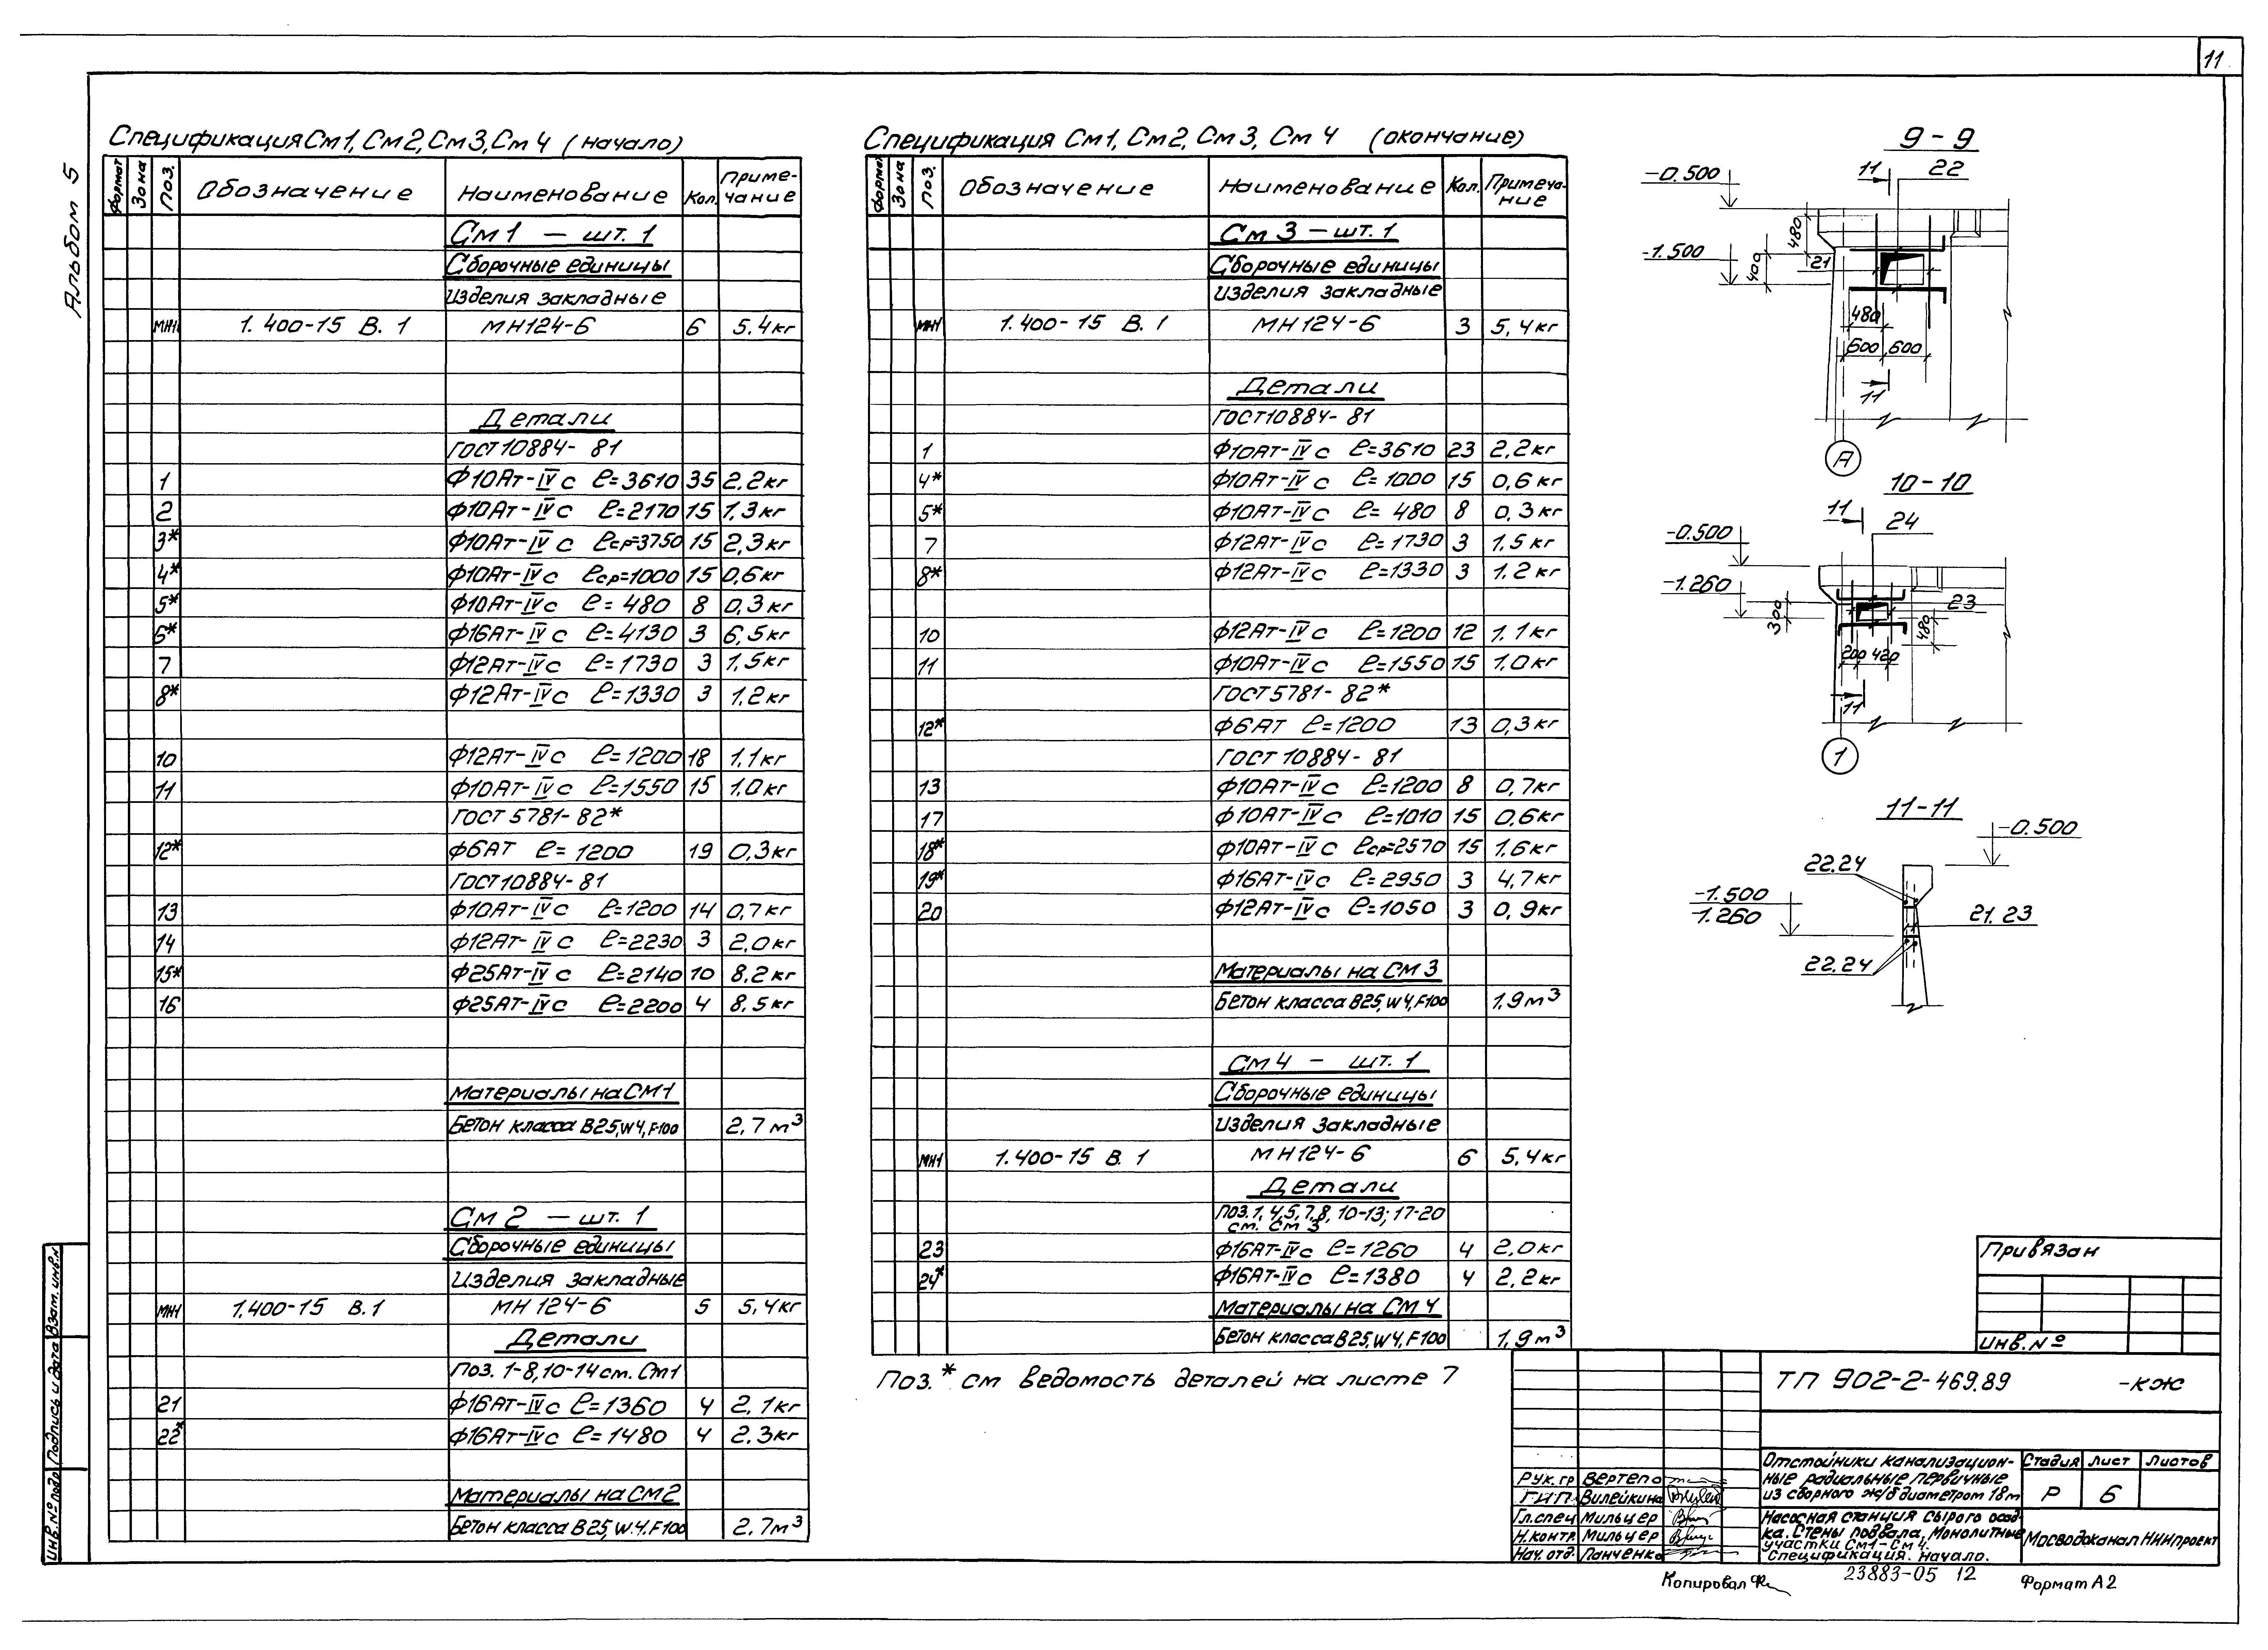 11
Альбом 5
Спецификация См1, См2, См3, См4 (начало)
Формат Зона Поз. Обозначение Наименование Кол. Приме-чание
См1 — шт. 1
Сборочные единицы
Изделия закладные
МН1 1.400-15 В.1 МН124-6 6 5.4кг
Детали
ГОСТ10884-81
1 Ф10Ат-IVс ℓ=3610 35 2,2кг
2 Ф10Ат-IVс ℓ=2170 15 1,3кг
3* Ф10Ат-IVс ℓср=3750 15 2,3кг
4* Ф10Ат-IVс ℓср=1000 15 0,6кг
5* Ф10Ат-IVс ℓ=480 8 0,3кг
6* Ф16Ат-IVс ℓ=4130 3 6,5кг
7 Ф12Ат-IVс ℓ=1730 3 1,5кг
8* Ф12Ат-IVс ℓ=1330 3 1,2кг
10 Ф12Ат-IVс ℓ=1200 18 1,1кг
11 Ф10Ат-IVс ℓ=1550 15 1,0кг
ГОСТ 5781-82*
12* Ф6АТ ℓ=1200 19 0,3кг
ГОСТ10884-81
13 Ф10Ат-IVс ℓ=1200 14 0,7кг
14 Ф12Ат-IVс ℓ=2230 3 2,0кг
15* Ф25Ат-IVс ℓ=2140 10 8,2кг
16 Ф25Ат-IVс ℓ=2200 4 8,5кг
Материалы на СМ1
Бетон класса В25, W4, F100 2,7м³
См2 — шт. 1
Сборочные единицы
Изделия закладные
МН1 1.400-15 В.1 МН124-6 5 5,4кг
Детали
Поз. 1-8, 10-14 ст. См1
21 Ф16Ат-IVс ℓ=1360 4 2,1кг
22* Ф16Ат-IVс ℓ=1480 4 2,3кг
Материалы на СМ2
Бетон класса В25, W.4, F100 2,7м³
Спецификация См1, См2, См3, См4 (окончание)
Формат Зона Поз. Обозначение Наименование Кол. Примеча-ние
См3 — шт. 1
Сборочные единицы
Изделия закладные
МН1 1.400-15 В.1 МН124-6 3 5,4кг
Детали
ГОСТ10884-81
1 Ф10Ат-IVс ℓ=3610 23 2,2кг
4* Ф10Ат-IVс ℓ=1000 15 0,6кг
5* Ф10Ат-IVс ℓ=480 8 0,3кг
7 Ф12Ат-IVс ℓ=1730 3 1,5кг
8* Ф12Ат-IVс ℓ=1330 3 1,2кг
10 Ф12Ат-IVс ℓ=1200 12 1,1кг
11 Ф10Ат-IVс ℓ=1550 15 1,0кг
ГОСТ5781-82*
12* Ф6АТ ℓ=1200 13 0,3кг
ГОСТ 10884-81
13 Ф10Ат-IVс ℓ=1200 8 0,7кг
17 Ф10Ат-IVс ℓ=1010 15 0,6кг
18* Ф10Ат-IVс ℓср=2570 15 1,6кг
19* Ф16Ат-IVс ℓ=2950 3 4,7кг
20 Ф12Ат-IVс ℓ=1050 3 0,9кг
Материалы на СМ3
Бетон класса В25, W4, F100 1,9м³
См4 — шт. 1
Сборочные единицы
Изделия закладные
МН1 1.400-15 В.1 МН124-6 6 5,4кг
Детали
Поз. 1, 4, 5, 7, 8, 10-13; 17-20
см. См3
23 Ф16Ат-IVс ℓ=1260 4 2,0кг
24* Ф16Ат-IVс ℓ=1380 4 2,2кг
Материалы на СМ4
Бетон класса В25, W4, F100 1,9м³
Поз.* см ведомость деталей на листе 7
9-9
11 22
-0.500
480
-1.500
400
21
480
600 600
11
А
10-10
11 24
-0.500
-1.260
300
23
480
200 420
11
1
11-11
-0.500
22.24
-1.500
-1.260
21.23
22.24
Привязан
Инв.№
ТП 902-2-469.89 -КЖ
Отстойники канализацион-
ные радиальные первичные
из сборного ж/б диаметром 18м
Стадия Лист Листов
Р 6
Насосная станция сырого осад-
ка. Стены подвала, Монолитные
участки См1-См4.
Спецификация. Начало.
МосводоканалНИИпроект
Рук.гр Вертепо
ГИП Вилейкина
Гл.спец Мильцер
Н.контр. Мильцер
Нач.отд. Панченко
Копировал
23883-05 12
Формат А2
Инв.№ подл Подпись и дата Взам.инв.№